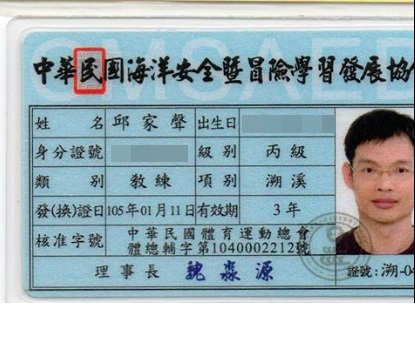 中華民國海洋安全暨冒險學習發展協
姓名 邱家聲 出生日
身分證號 級別 丙級
類別 教練 項別 溯溪
發(換)證日 105年01月11日 有效期 3年
核准字號 中華民國體育運動總會
體總輔字第1040002212號
理事長 魏淼源
證號:溯-04